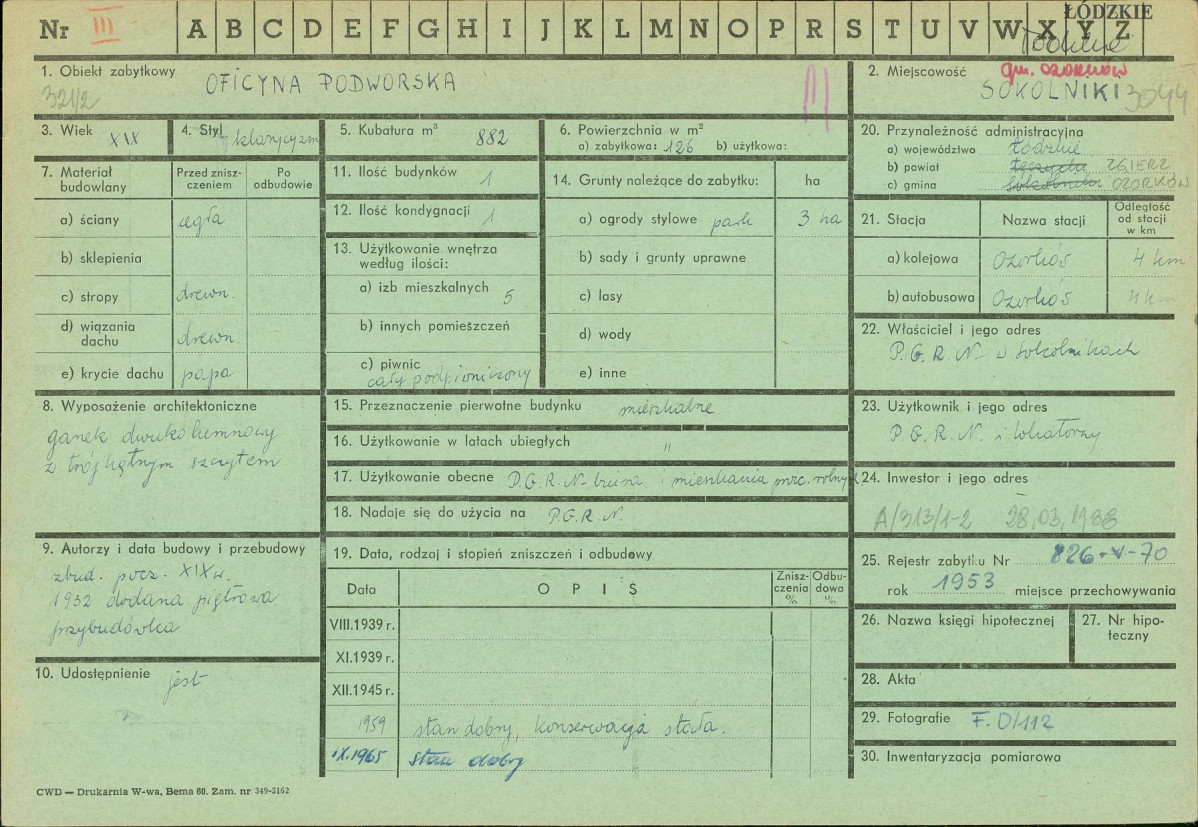 Nr III A B C D E F G H I J K L M N O P R S T U V W X Y Z
ŁÓDZKIE
1. Obiekt zabytkowy
OFICYNA PODWORSKA
321/2
2. Miejscowość gm. OZORKÓW
SOKOLNIKI 3044
3. Wiek XIX
4. Styl klasycyzm
5. Kubatura m³ 882
6. Powierzchnia w m²
a) zabytkowa: 126 b) użytkowa:
7. Materiał budowlany
Przed zniszczeniem
Po odbudowie
a) ściany cegła
b) sklepienia
c) stropy drewn.
d) wiązania dachu drewn.
e) krycie dachu papa
8. Wyposażenie architektoniczne
ganek dwukolumnowy
z trójkątnym szczytem
9. Autorzy i data budowy i przebudowy
zbud. pocz. XIX w.
1932 dodana piętrowa
przybudówka
10. Udostępnienie jest
11. Ilość budynków 1
12. Ilość kondygnacji 1
13. Użytkowanie wnętrza
według ilości:
a) izb mieszkalnych 5
b) innych pomieszczeń
c) piwnic
cały podpiwniczony
14. Grunty należące do zabytku: ha
a) ogrody stylowe park 3 ha
b) sady i grunty uprawne
c) lasy
d) wody
e) inne
15. Przeznaczenie pierwotne budynku mieszkalne
16. Użytkowanie w latach ubiegłych "
17. Użytkowanie obecne P.G.R.N. biura i mieszkania prac. rolnych
18. Nadaje się do użycia na P.G.R.N.
19. Data, rodzaj i stopień zniszczeń i odbudowy
Data
OPIS
Zniszczenia %
Odbudowa %
VIII.1939 r.
XI.1939 r.
XII.1945 r.
1959 stan dobry, konserwacja stała.
IX.1965 stan dobry
20. Przynależność administracyjna
a) województwo Łódzkie
b) powiat Łęczyca ZGIERZ
c) gmina Sokolniki OZORKÓW
21. Stacja
Nazwa stacji
Odległość od stacji w km
a) kolejowa Ozorków 4 km
b) autobusowa Ozorków 4 km
22. Właściciel i jego adres
P.G.R.N. w Sokolnikach
23. Użytkownik i jego adres
P.G.R.N. i lokatorzy
24. Inwestor i jego adres
A/313/1-2 28.03.1988
25. Rejestr zabytku Nr 826-V-70
rok 1953 miejsce przechowywania
26. Nazwa księgi hipotecznej
27. Nr hipoteczny
28. Akta
29. Fotografie F. D/112
30. Inwentaryzacja pomiarowa
CWD — Drukarnia W-wa, Bema 60. Zam. nr 349-5162